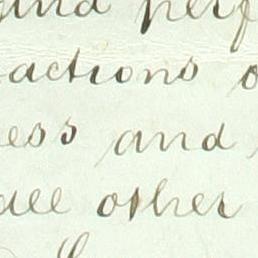 and perf
actions o
ess and
all other